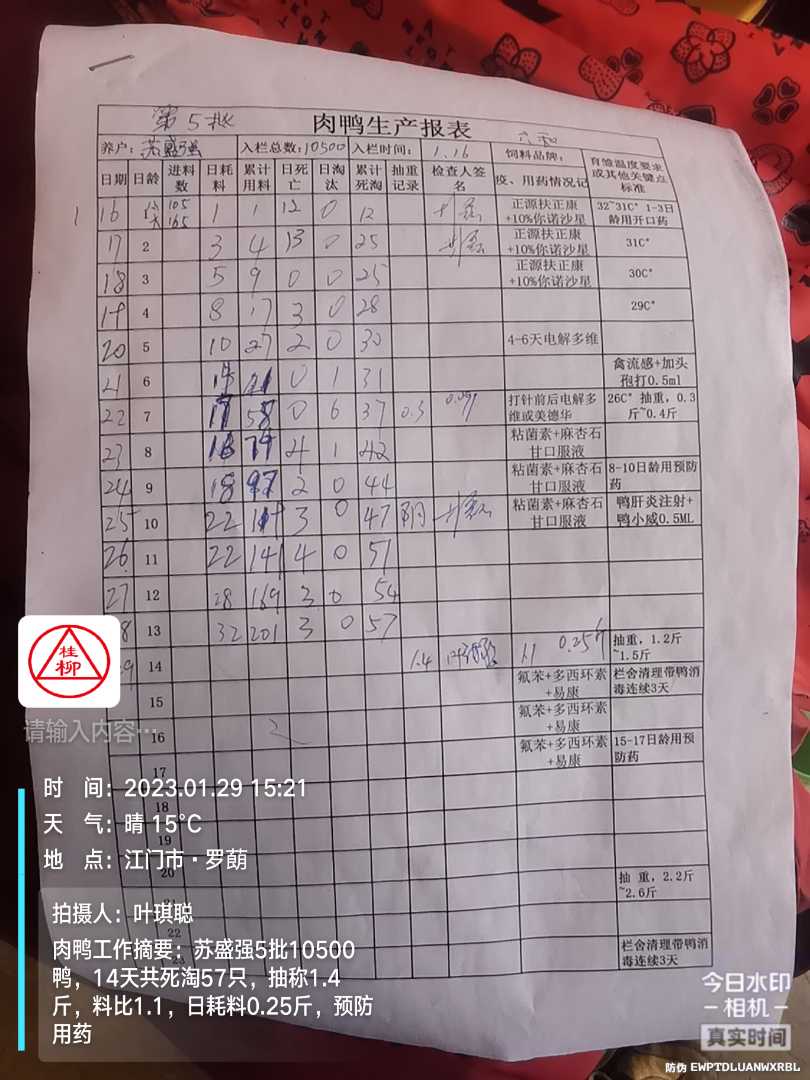 第5批
肉鸭生产报表
六和
养户: 苏盛强 入栏总数:10500 入栏时间: 1.16 饲料品牌: 育雏温度要求或其他关键点标准
日期 日龄 进料数 日耗料 累计用料 日死亡 日淘汰 累计死淘 抽重记录 检查人签名 疫、用药情况记
16 105 165 1 1 12 0 12 正源扶正康+10%你诺沙星 32~31C° 1-3日龄用开口药
17 2 3 4 13 0 25 正源扶正康+10%你诺沙星 31C°
18 3 5 9 0 0 25 正源扶正康+10%你诺沙星 30C°
19 4 8 17 3 0 28 29C°
20 5 10 27 2 0 30 4-6天电解多维
21 6 14 41 0 1 31 禽流感+加头孢打0.5ml
22 7 17 58 0 6 37 0.3 打针前后电解多维或美德华 26C° 抽重，0.3斤~0.4斤
23 8 79 4 1 42 粘菌素+麻杏石甘口服液
24 9 18 97 2 0 44 粘菌素+麻杏石甘口服液 8-10日龄用预防药
25 10 22 119 3 0 47 阴 粘菌素+麻杏石甘口服液 鸭肝炎注射+鸭小威0.5ML
26 11 22 141 4 0 51
27 12 28 169 3 0 54
8 13 32 201 3 0 57
9 14 1.4 1.1 0.25斤 抽重，1.2斤~1.5斤
15 氟苯+多西环素+易康 栏舍清理带鸭消毒连续3天
16 氟苯+多西环素+易康
17 氟苯+多西环素+易康 15-17日龄用预防药
18
19
20 抽 重，2.2斤~2.6斤
21
22
23 栏舍清理带鸭消毒连续3天
桂柳
请输入内容…
时 间：2023.01.29 15:21
天 气：晴 15℃
地 点：江门市·罗萌
拍摄人：叶琪聪
肉鸭工作摘要：苏盛强5批10500
鸭，14天共死淘57只，抽称1.4
斤，料比1.1，日耗料0.25斤，预防
用药
今日水印
相机
真实时间
防伪 EWPTDLUANWXRBL